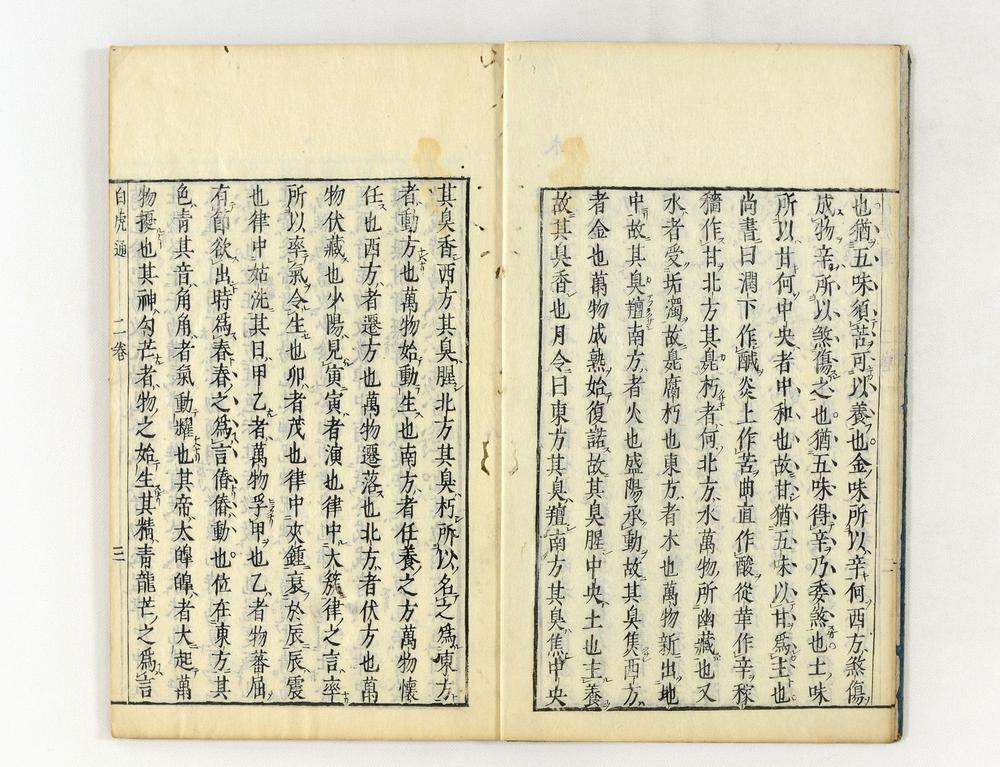 也猶五味須苦可以養也金味所以辛何西方煞傷
成物辛所以煞傷之也猶五味得辛乃委煞也土味
所以甘何中央者中和也故甘猶五味以甘爲主也
尚書曰潤下作鹹炎上作苦曲直作酸從革作辛稼
穡作甘北方其臭朽者何北方水萬物所幽藏也又
水者受垢濁故臭腐朽也東方者木也萬物新出地
中故其臭羶南方者火也盛陽承動故其臭焦西方
者金也萬物成熟始復諾故其臭腥中央土也主養
故其臭香也月令曰東方其臭羶南方其臭焦中央
其臭香西方其臭腥北方其臭朽所以名之爲東方
者動方也萬物始動生也南方者任養之方萬物懷
任也西方者遷方也萬物遷落也北方者伏方也萬
物伏藏也少陽見寅寅者演也律中大簇律之言率
所以率氣令生也卯者茂也律中夾鍾衰於辰辰震
也律中姑洗其日甲乙者萬物孚甲也乙者物蕃屈
有節欲出時爲春春之爲言偆偆動也位在東方其
色青其音角角者氣動耀也其帝太皥皥者大起萬
物擾也其神勾芒者物之始生其精青龍芒之爲言
白虎通 二卷 三